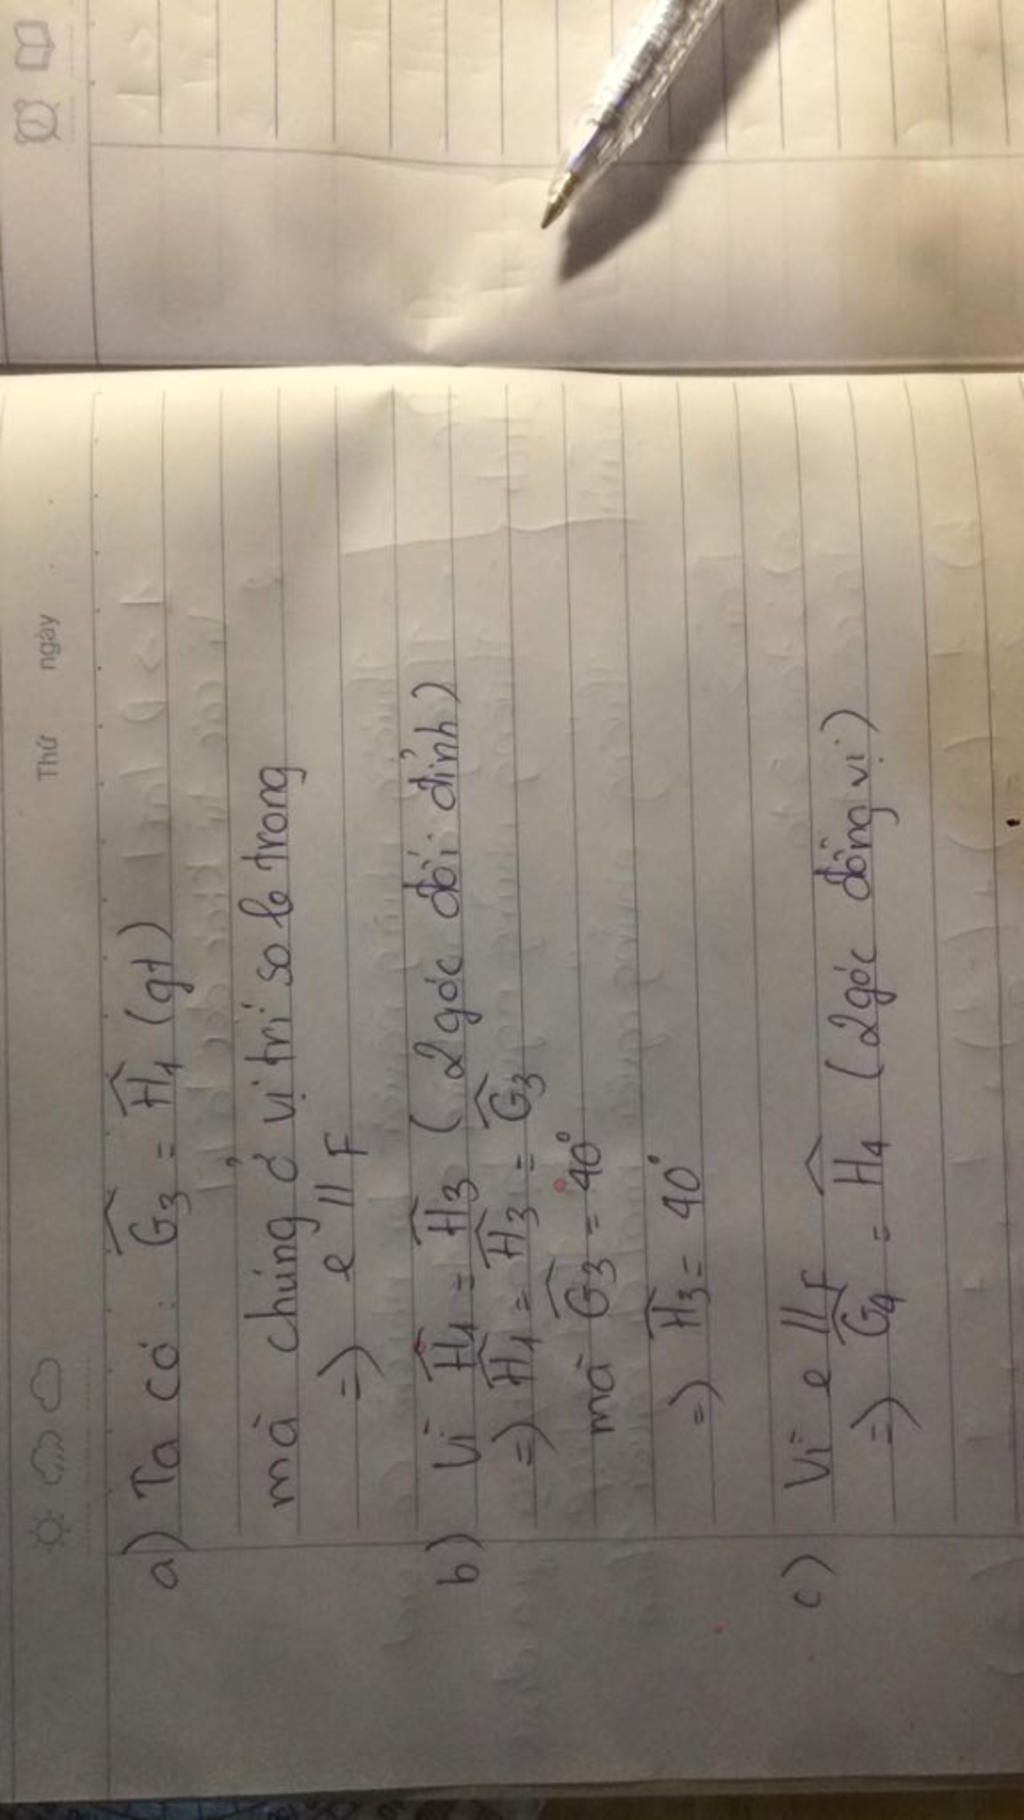 Thứ ngày
a) Ta có: Ĝ₃ = Ĥ₁ (gt)
mà chúng ở vị trí so le trong
=) e // F
b) Vì Ĥ₁ = Ĥ₃ (2 góc đối đỉnh)
=) Ĥ₁ = Ĥ₃ = Ĝ₃
mà Ĝ₃ = 40°
=) Ĥ₃ = 40°
c) Vì e // F
=) Ĝ₄ = Ĥ₄ (2 góc đồng vị)